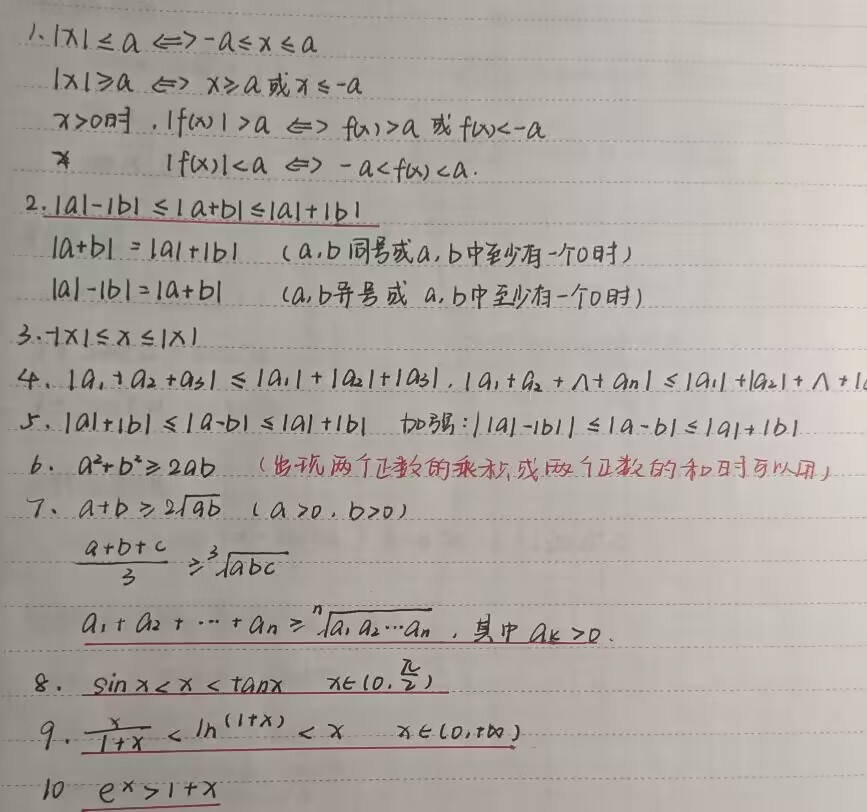 1. |x| ≤ a ⟺ -a ≤ x ≤ a
|x| ≥ a ⟺ x ≥ a 或 x ≤ -a
x>0时, |f(x)| > a ⟺ f(x) > a 或 f(x) < -a
|f(x)| < a ⟺ -a < f(x) < a.
2. |a|-|b| ≤ |a+b| ≤ |a|+|b|
|a+b| = |a|+|b| (a,b同号或a,b中至少有一个0时)
|a|-|b| = |a+b| (a,b异号或 a,b中至少有一个0时)
3. -|x| ≤ x ≤ |x|
4. |a₁+a₂+a₃| ≤ |a₁|+|a₂|+|a₃|, |a₁+a₂+∧+aₙ| ≤ |a₁|+|a₂|+∧+|
5. |a|+|b| ≤ |a-b| ≤ |a|+|b| 加强: ||a|-|b|| ≤ |a-b| ≤ |a|+|b|
6. a²+b² ≥ 2ab (出现两个正数的乘积或两个正数的和时可以用)
7. a+b ≥ 2√ab (a>0, b>0)
(a+b+c)/3 ≥ ³√abc
a₁+a₂+⋯+aₙ ≥ ⁿ√a₁a₂⋯aₙ, 其中 aₖ>0.
8. sinx < x < tanx x∈(0, π/2)
9. x/(1+x) < ln(1+x) < x x∈(0,+∞)
10 eˣ > 1+x